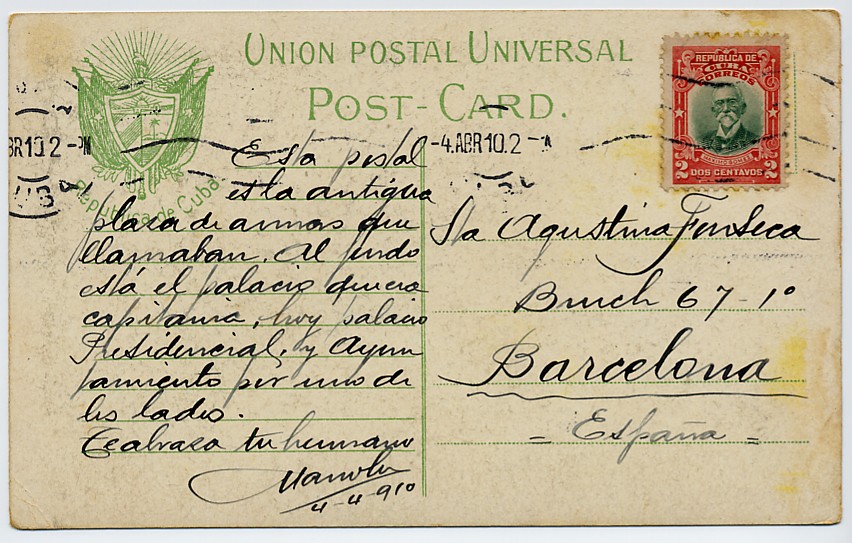 UNION POSTAL UNIVERSAL
POST-CARD.
República de Cuba
REPÚBLICA DE
CUBA
CORREOS
MÁXIMO GOMEZ
2 2
DOS CENTAVOS
BR10.2-PM
-4.ABR10.2-
Esta postal
es la antigua
plaza de armas que
llamaban. Al fondo
está el palacio que era
capitania, hoy palacio
Presidencial, y Ayun
tamiento por uno de
los lados.
Te abraza tu hermano
Manolo
4-4-910
Sta Agustina Fonseca
Bruch 67-1º
Barcelona
= España =